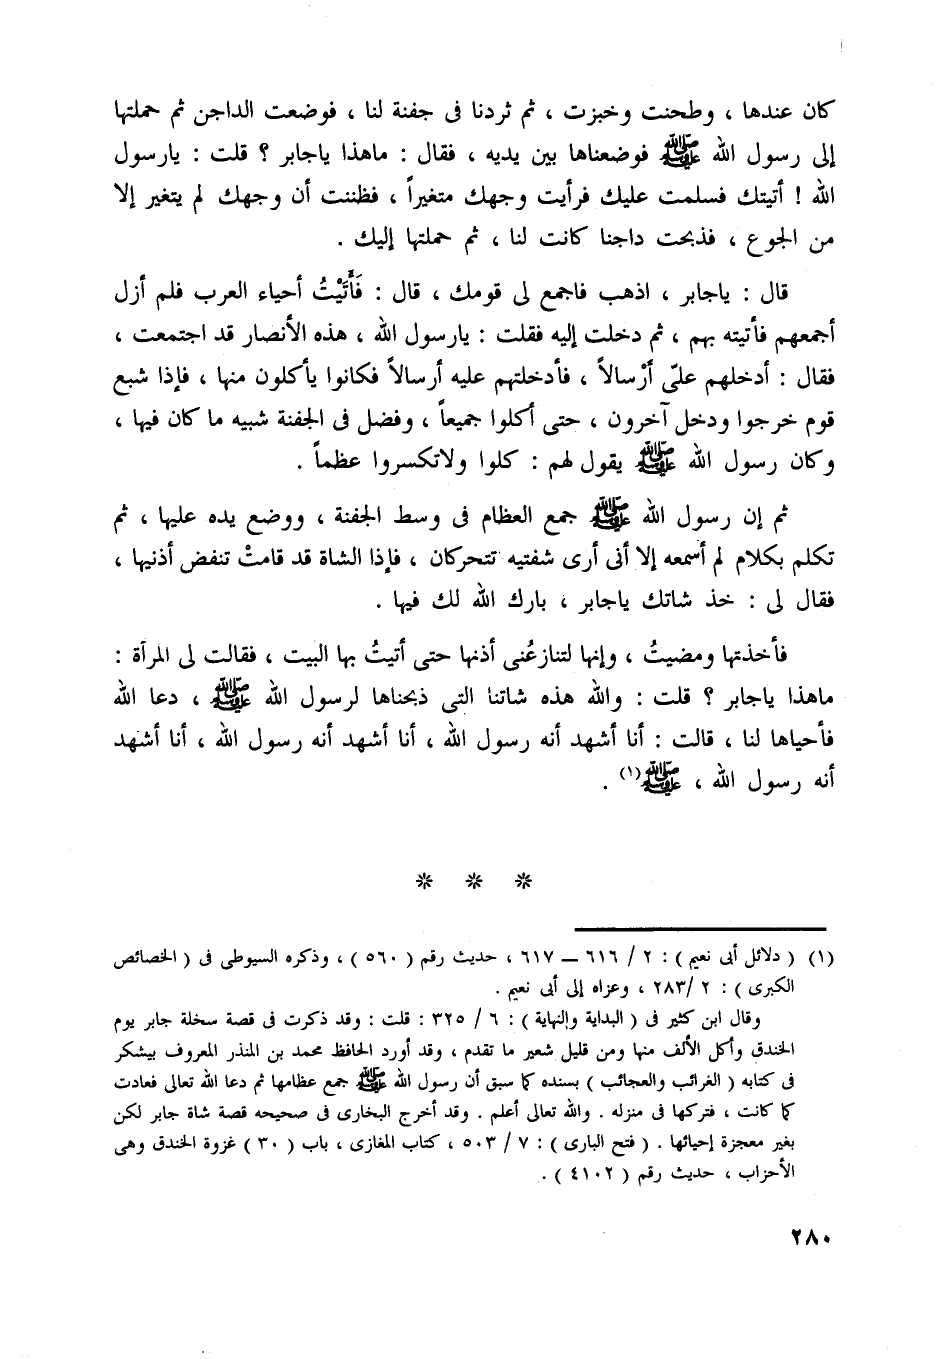 كان عندها ، وطحنت وخبزت ، ثم ثردنا فى جفنة لنا ، فوضعت الداجن ثم حملتها
إلى رسول الله ﷺ فوضعناها بين يديه ، فقال : ماهذا ياجابر ؟ قلت : يارسول
الله ! أتيتك فسلمت عليك فرأيت وجهك متغيراً ، فظننت أن وجهك لم يتغير إلا
من الجوع ، فذبحت داجنا كانت لنا ، ثم حملتها إليك .
قال : ياجابر ، اذهب فاجمع لى قومك ، قال : فَأَتَيْتُ أحياء العرب فلم أزل
أجمعهم فأتيته بهم ، ثم دخلت إليه فقلت : يارسول الله ، هذه الأنصار قد اجتمعت ،
فقال : أدخلهم علىّ أرْسالاً ، فأدخلتهم عليه أرسالاً فكانوا يأكلون منها ، فإذا شبع
قوم خرجوا ودخل آخرون ، حتى أكلوا جميعاً ، وفضل فى الجفنة شبيه ما كان فيها ،
وكان رسول الله ﷺ يقول لهم : كلوا ولاتكسروا عظماً .
ثم إن رسول الله ﷺ جمع العظام فى وسط الجفنة ، ووضع يده عليها ، ثم
تكلم بكلام لم أسمعه إلا أنى أرى شفتيه تتحركان ، فإذا الشاة قد قامتْ تنفض أذنيها ،
فقال لى : خذ شاتك ياجابر ، بارك الله لك فيها .
فأخذتها ومضيتُ ، وإنها لتنازعُنى أذنها حتى أتيتُ بها البيت ، فقالت لى المرآة :
ماهذا ياجابر ؟ قلت : والله هذه شاتنا التى ذبحناها لرسول الله ﷺ ، دعا الله
فأحياها لنا ، قالت : أنا أشهد أنه رسول الله ، أنا أشهد أنه رسول الله ، أنا أشهد
أنه رسول الله ، ﷺ(١) .
* * *
(١) ( دلائل أبى نعيم ) : ٢ / ٦١٦ ــ ٦١٧ ، حديث رقم ( ٥٦٠ ) ، وذكره السيوطى فى ( الخصائص
الكبرى ) : ٢ /٢٨٣ ، وعزاه إلى أبى نعيم .
وقال ابن كثير فى ( البداية والنهاية ) : ٦ / ٣٢٥ : قلت : وقد ذكرت فى قصة سخلة جابر يوم
الخندق وأكل الألف منها ومن قليل شعير ما تقدم ، وقد أورد الحافظ محمد بن المنذر المعروف بيشكر
فى كتابه ( الغرائب والعجائب ) بسنده كما سبق أن رسول الله ﷺ جمع عظامها ثم دعا الله تعالى فعادت
كما كانت ، فتركها فى منزله . والله تعالى أعلم . وقد أخرج البخارى فى صحيحه قصة شاة جابر لكن
بغير معجزة إحيائها . ( فتح البارى ) : ٧ / ٥٠٣ ، كتاب المغازى ، باب ( ٣٠ ) غزوة الخندق وهى
الأحزاب ، حديث رقم ( ٤١٠٢ ) .
٢٨٠